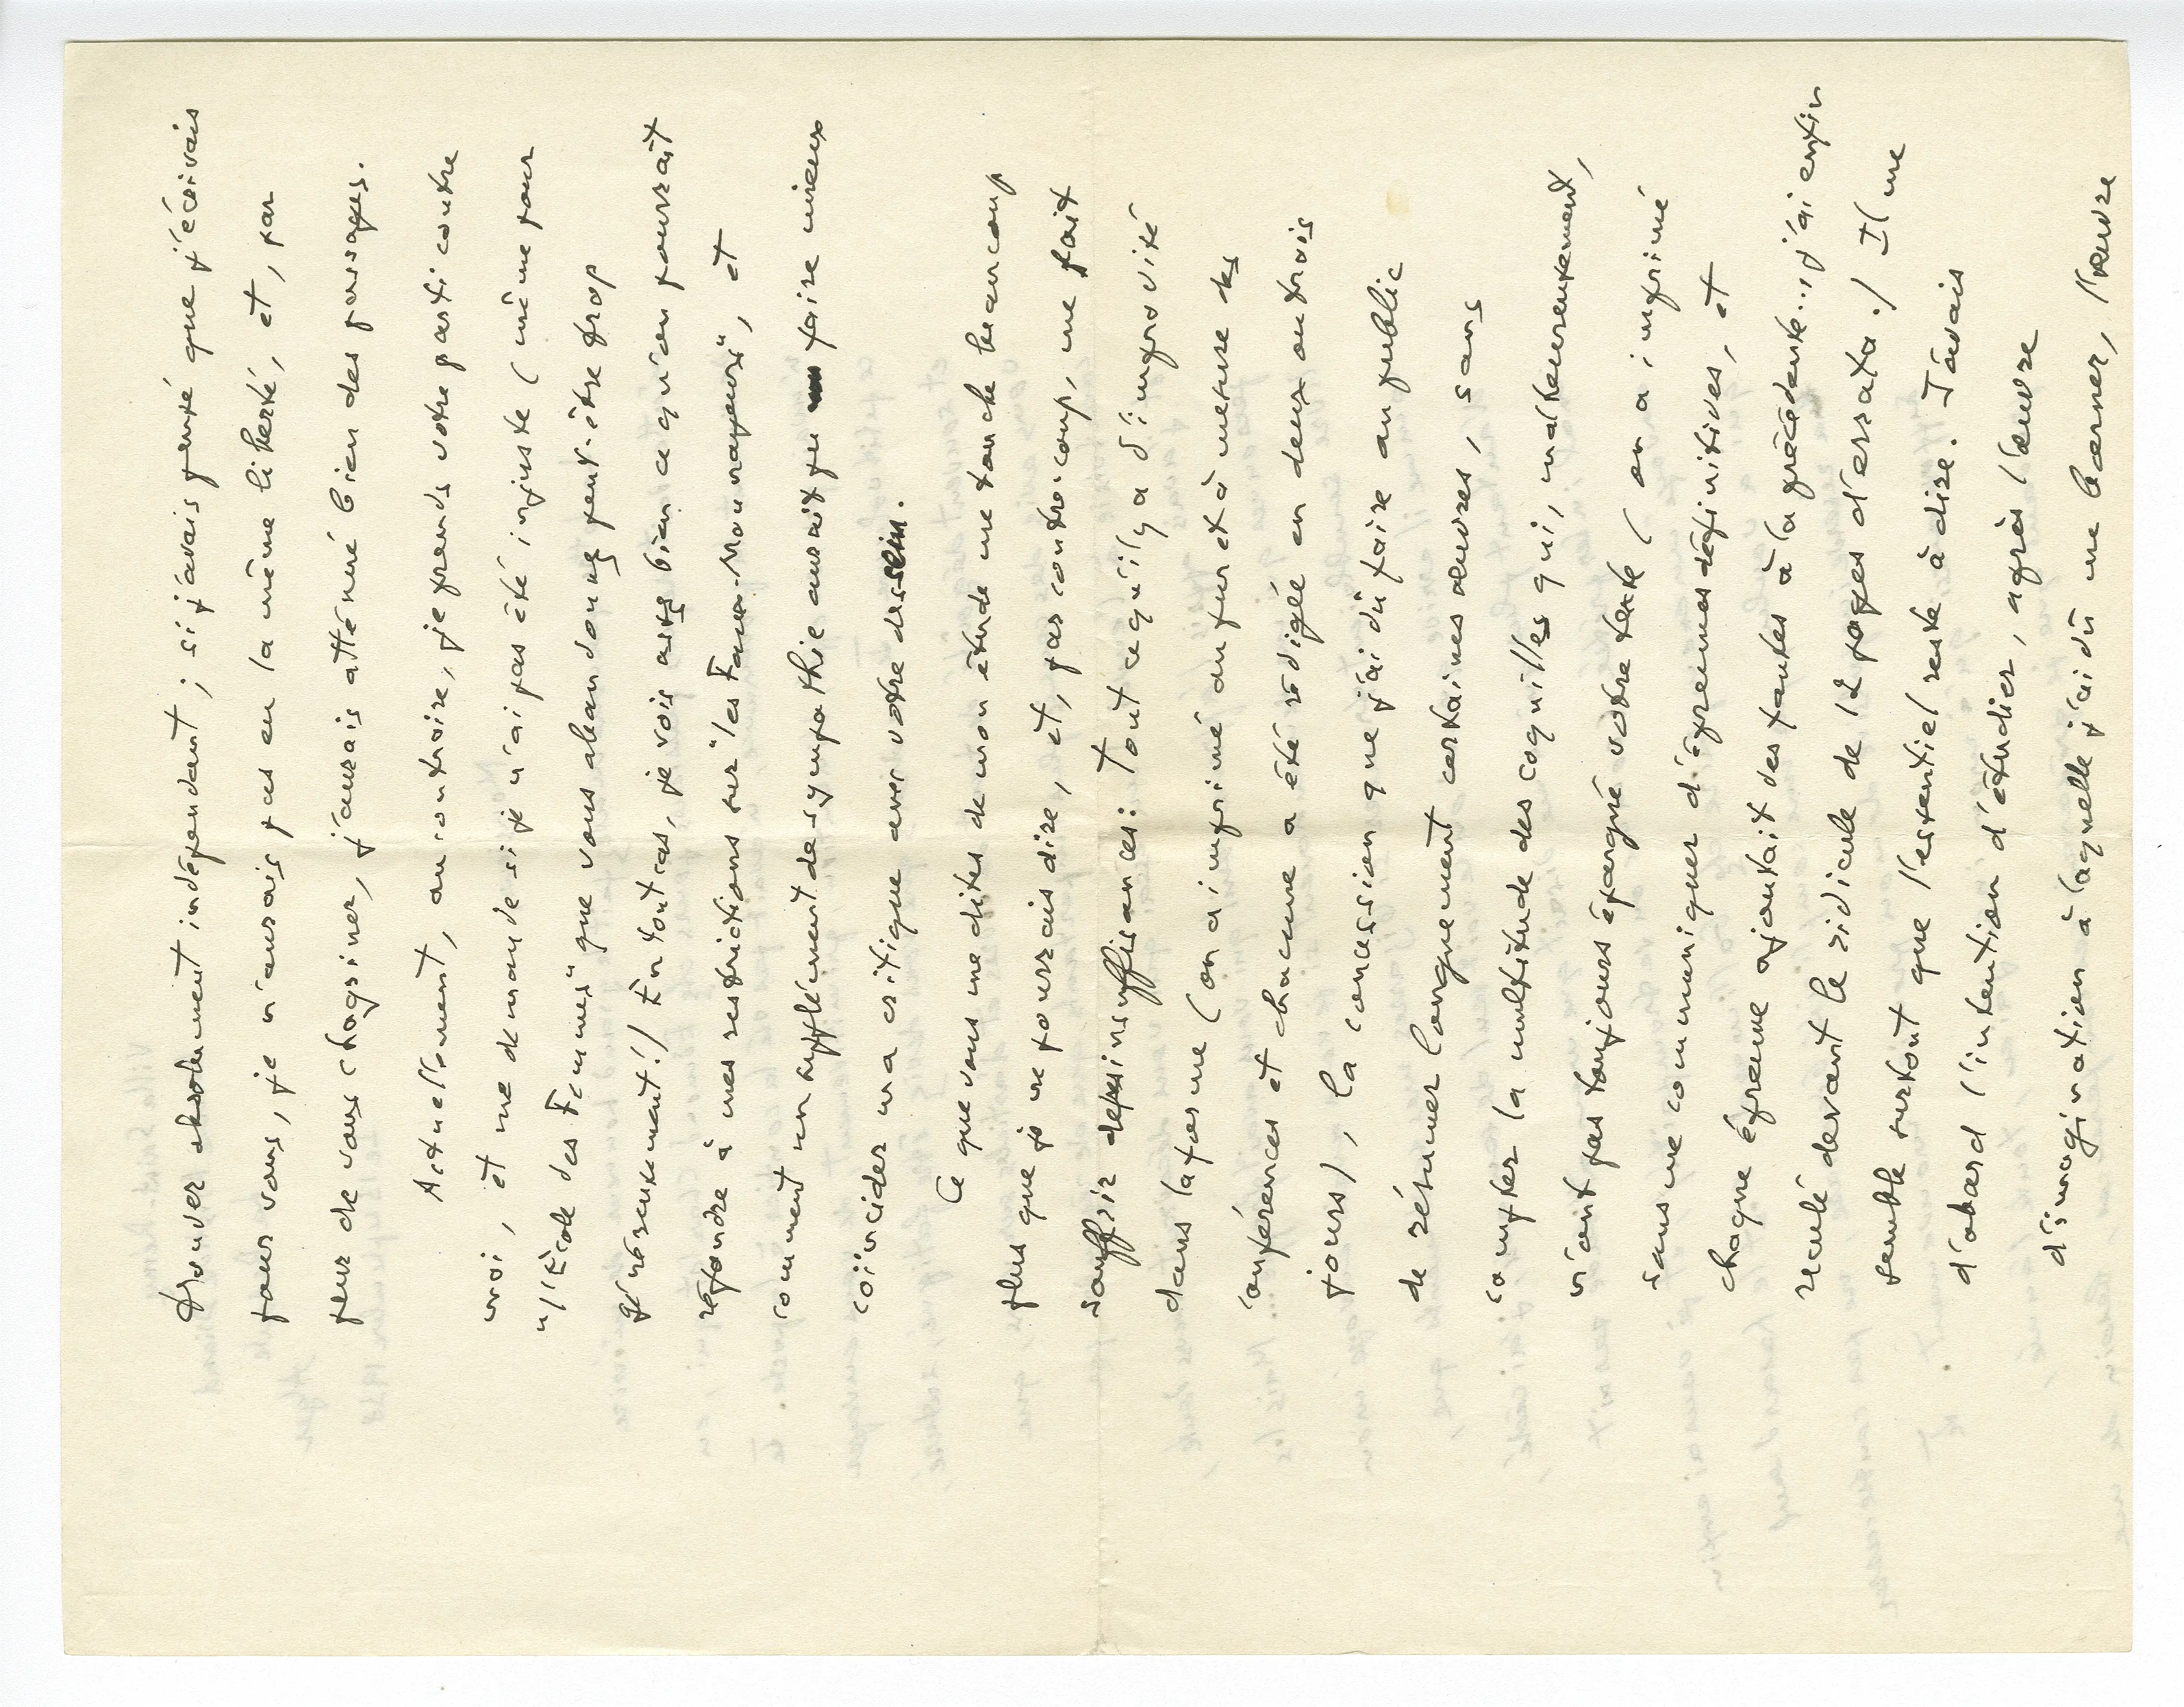 trouver absolument indépendant ; si j'avais pensé que j'écrivais
pour vous, je n'aurais pas eu la même liberté, et, par
peur de vous chagriner, j'aurais atténué bien des passages.
Actuellement, au contraire, je prends votre parti contre
moi, et me demande si je n'ai pas été injuste (même pour
"l'École des Femmes" que vous abandonnez peut-être trop
généreusement !) En tout cas, je vois assez bien ce qu'on pourrait
répondre à mes restrictions sur "les Faux-Monnayeurs", et
comment un supplément de sympathie aurait pu faire mieux
coïncider ma critique avec votre dessein.
Ce que vous me dites de mon étude me touche beaucoup
plus que je ne pourrais dire, et, par contre-coup, me fait
souffrir de ses insuffisances : tout ce qu'il y a d'improvisé
dans la forme (on a imprimé au fur et à mesure des
conférences et chacune a été rédigée en deux ou trois
jours), la concession que j'ai dû faire au public
de résumer longuement certaines œuvres, sans
compter la multitude des coquilles qui, malheureusement,
n'ont pas toujours épargné votre texte (on a imprimé
sans me communiquer d'épreuves définitives, et
chaque épreuve ajoutait des fautes à la précédente... j'ai enfin
reculé devant le ridicule de 12 pages d'errata !) Il me
semble surtout que l'essentiel reste à dire. J'avais
d'abord l'intention d'étudier, après l'œuvre
d'imagination à laquelle j'ai dû me borner, l'œuvre